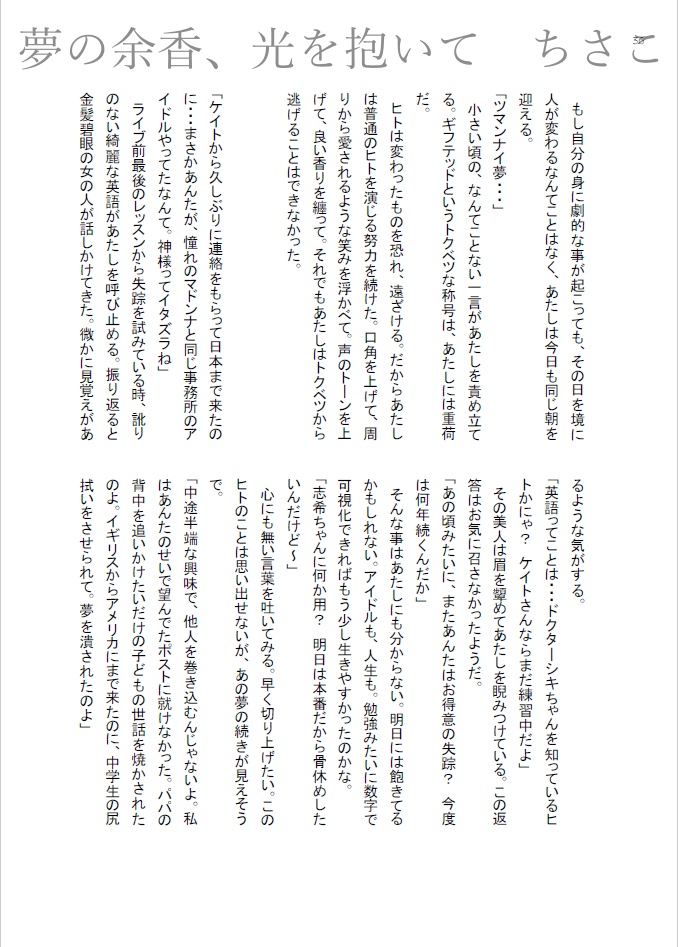 夢の余香、光を抱いて　ちさこ
　もし自分の身に劇的な事が起こっても、その日を境に
人が変わるなんてことはなく、あたしは今日も同じ朝を
迎える。
「ツマンナイ夢・・・」
　小さい頃の、なんてことない一言があたしを責め立て
る。ギフテッドというトクベツな称号は、あたしには重荷
だ。
　ヒトは変わったものを恐れ、遠ざける。だからあたし
は普通のヒトを演じる努力を続けた。口角を上げて、周
りから愛されるような笑みを浮かべて。声のトーンを上
げて、良い香りを纏って。それでもあたしはトクベツから
逃げることはできなかった。
「ケイトから久しぶりに連絡をもらって日本まで来たの
に・・・まさかあんたが、憧れのマドンナと同じ事務所のア
イドルやってたなんて。神様ってイタズラね」
　ライブ前最後のレッスンから失踪を試みている時、訛り
のない綺麗な英語があたしを呼び止める。振り返ると
金髪碧眼の女の人が話しかけてきた。微かに見覚えがあ
るような気がする。
「英語ってことは・・・ドクターシキちゃんを知っているヒ
トかにゃ？　ケイトさんならまだ練習中だよ」
　その美人は眉を顰めてあたしを睨みつけている。この返
答はお気に召さなかったようだ。
「あの頃みたいに、またあんたはお得意の失踪？　今度
は何年続くんだか」
　そんな事はあたしにも分からない。明日には飽きてる
かもしれない。アイドルも、人生も。勉強みたいに数字で
可視化できればもう少し生きやすかったのかな。
「志希ちゃんに何か用？　明日は本番だから骨休めした
いんだけど～」
　心にも無い言葉を吐いてみる。早く切り上げたい。この
ヒトのことは思い出せないが、あの夢の続きが見えそう
で。
「中途半端な興味で、他人を巻き込むんじゃないよ。私
はあんたのせいで望んでたポストに就けなかった。パパの
背中を追いかけたいだけの子どもの世話を焼かされた
のよ。イギリスからアメリカにまで来たのに、中学生の尻
拭いをさせられて。夢を潰されたのよ」